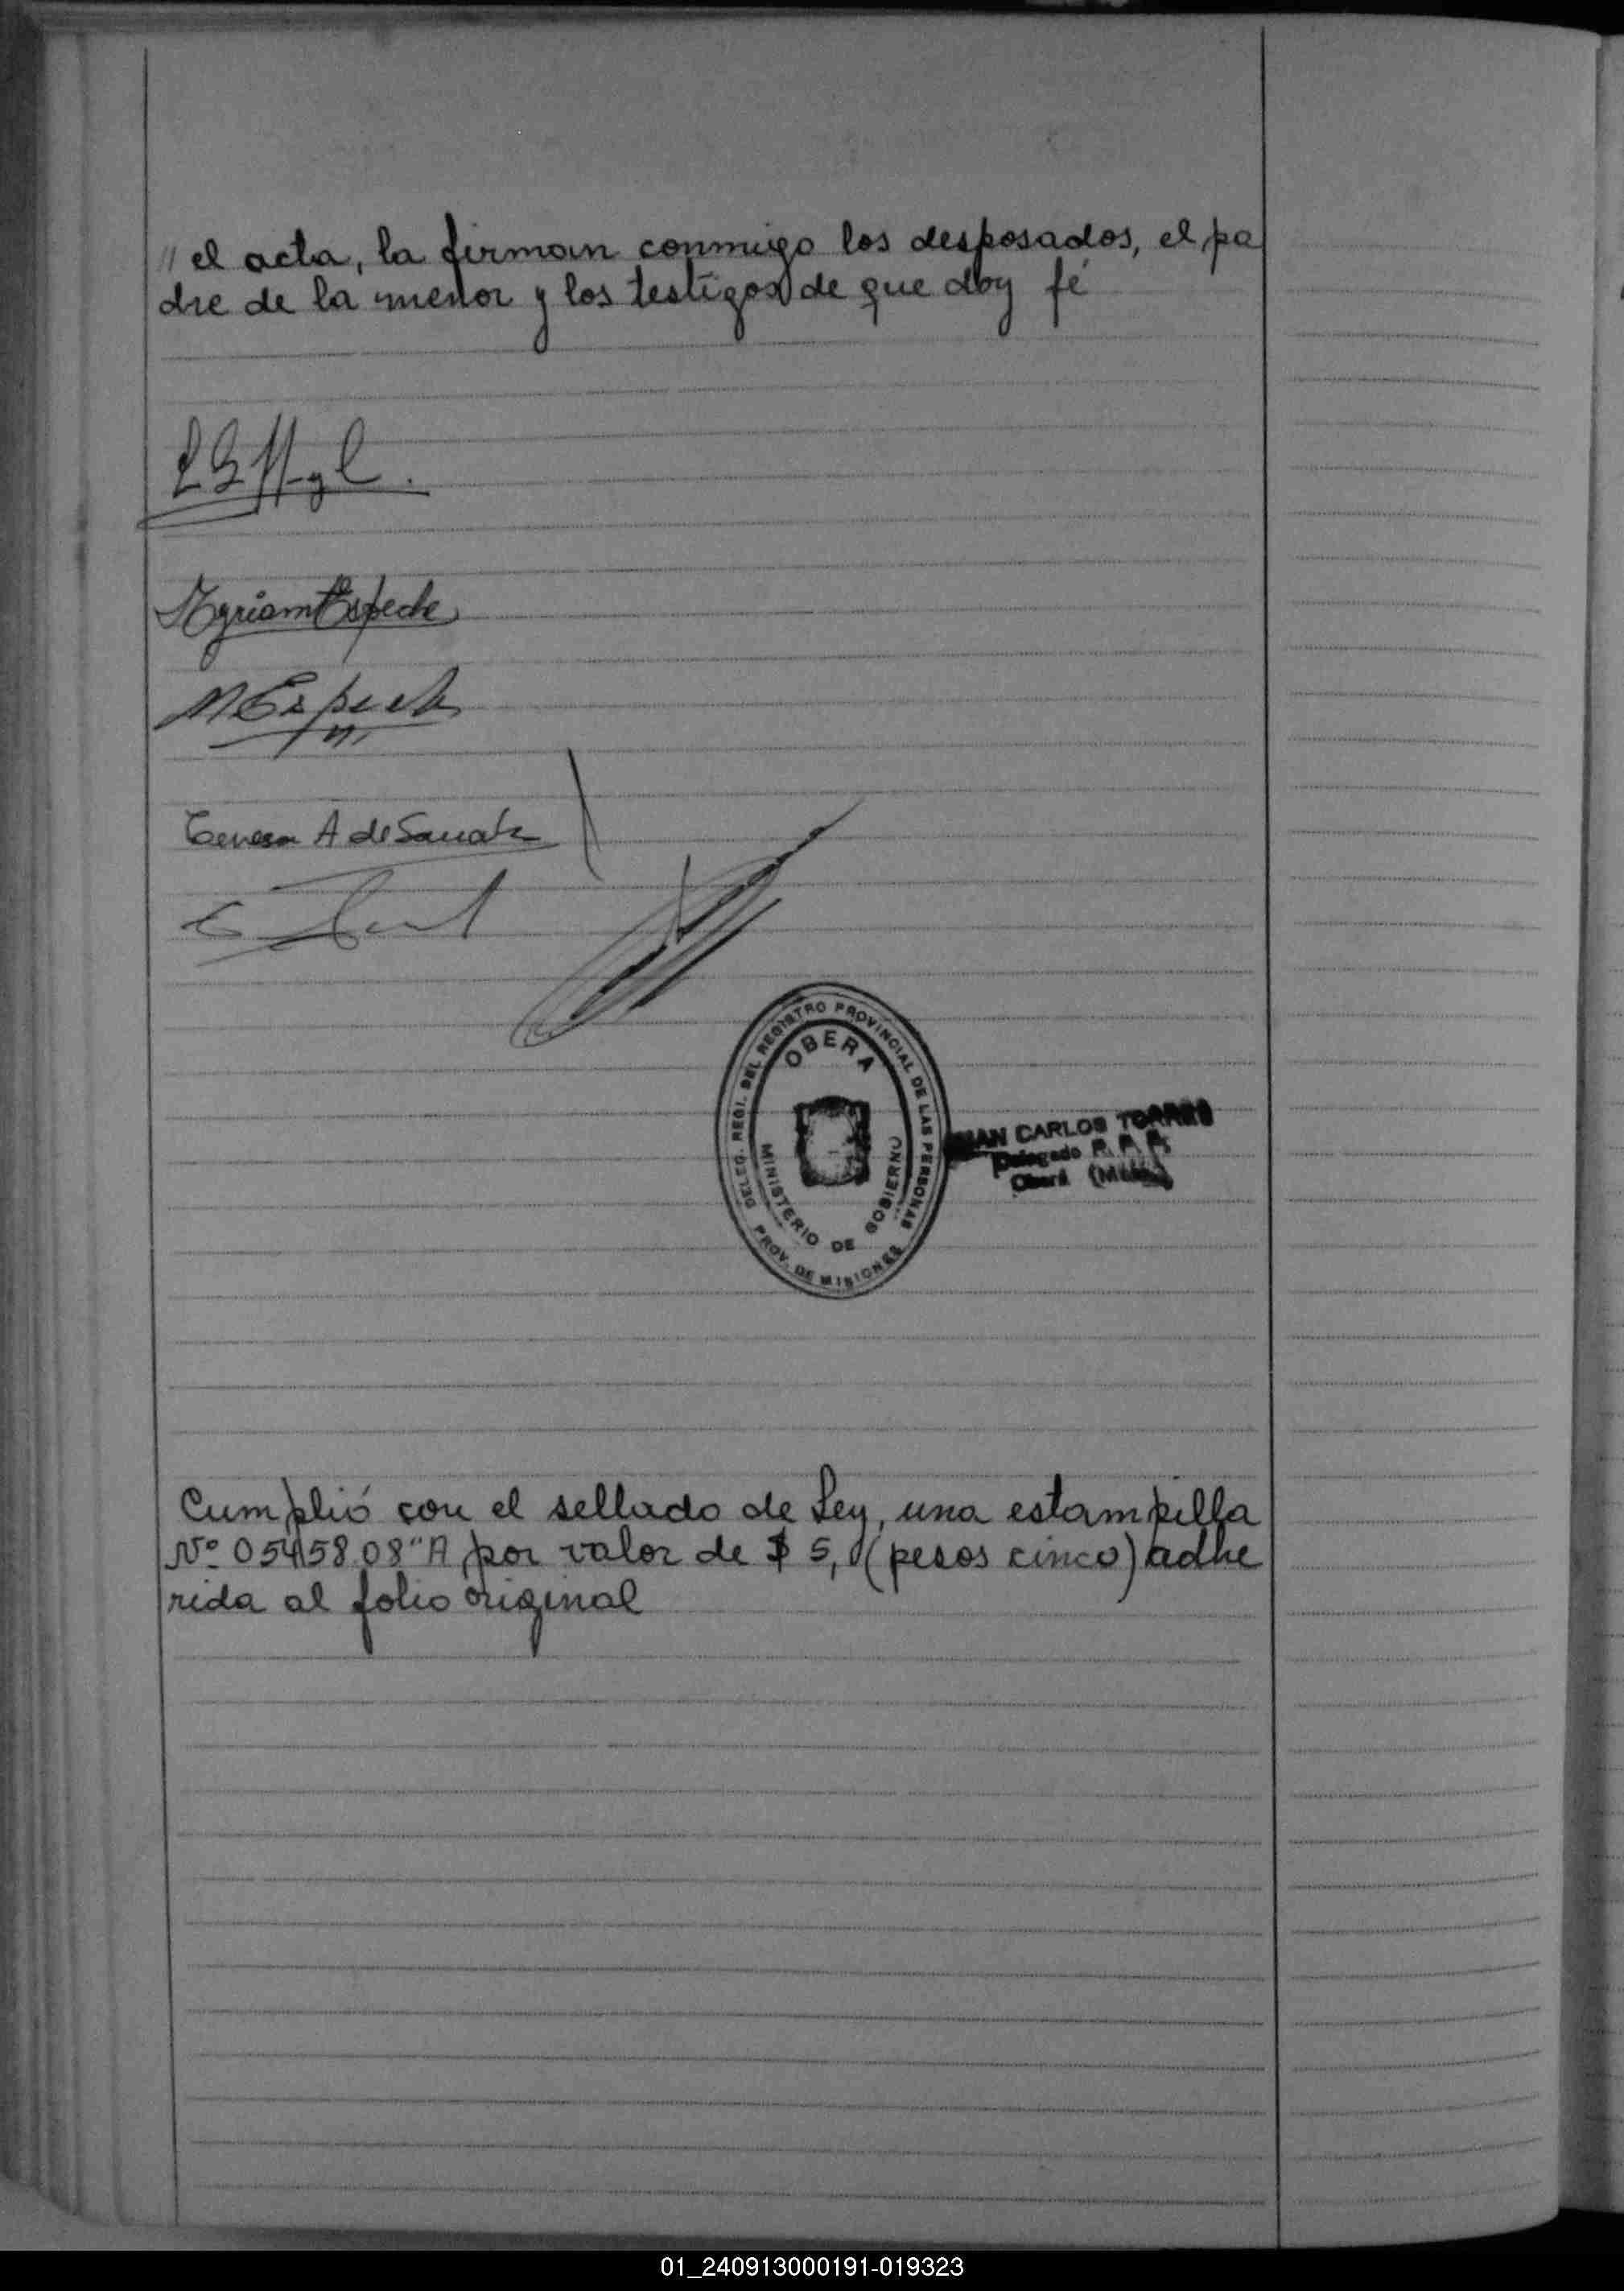 // el acta, la firman conmigo los desposados, el pa
dre de la menor y los testigos de que doy fé
Myriam Espeche
M Espech
Teresa A de
DELEG. REGI. DEL REGISTRO PROVINCIAL DE LAS PERSONAS
OBERA
MINISTERIO DE GOBIERNO
PROV. DE MISIONES
JUAN CARLOS TORRES
Delegado R. P. P.
Oberá
Cumplió con el sellado de Ley, una estampilla
Nº 05458 08 "A por valor de $ 5, (pesos cinco) adhe
rida al folio original
01_240913000191-019323